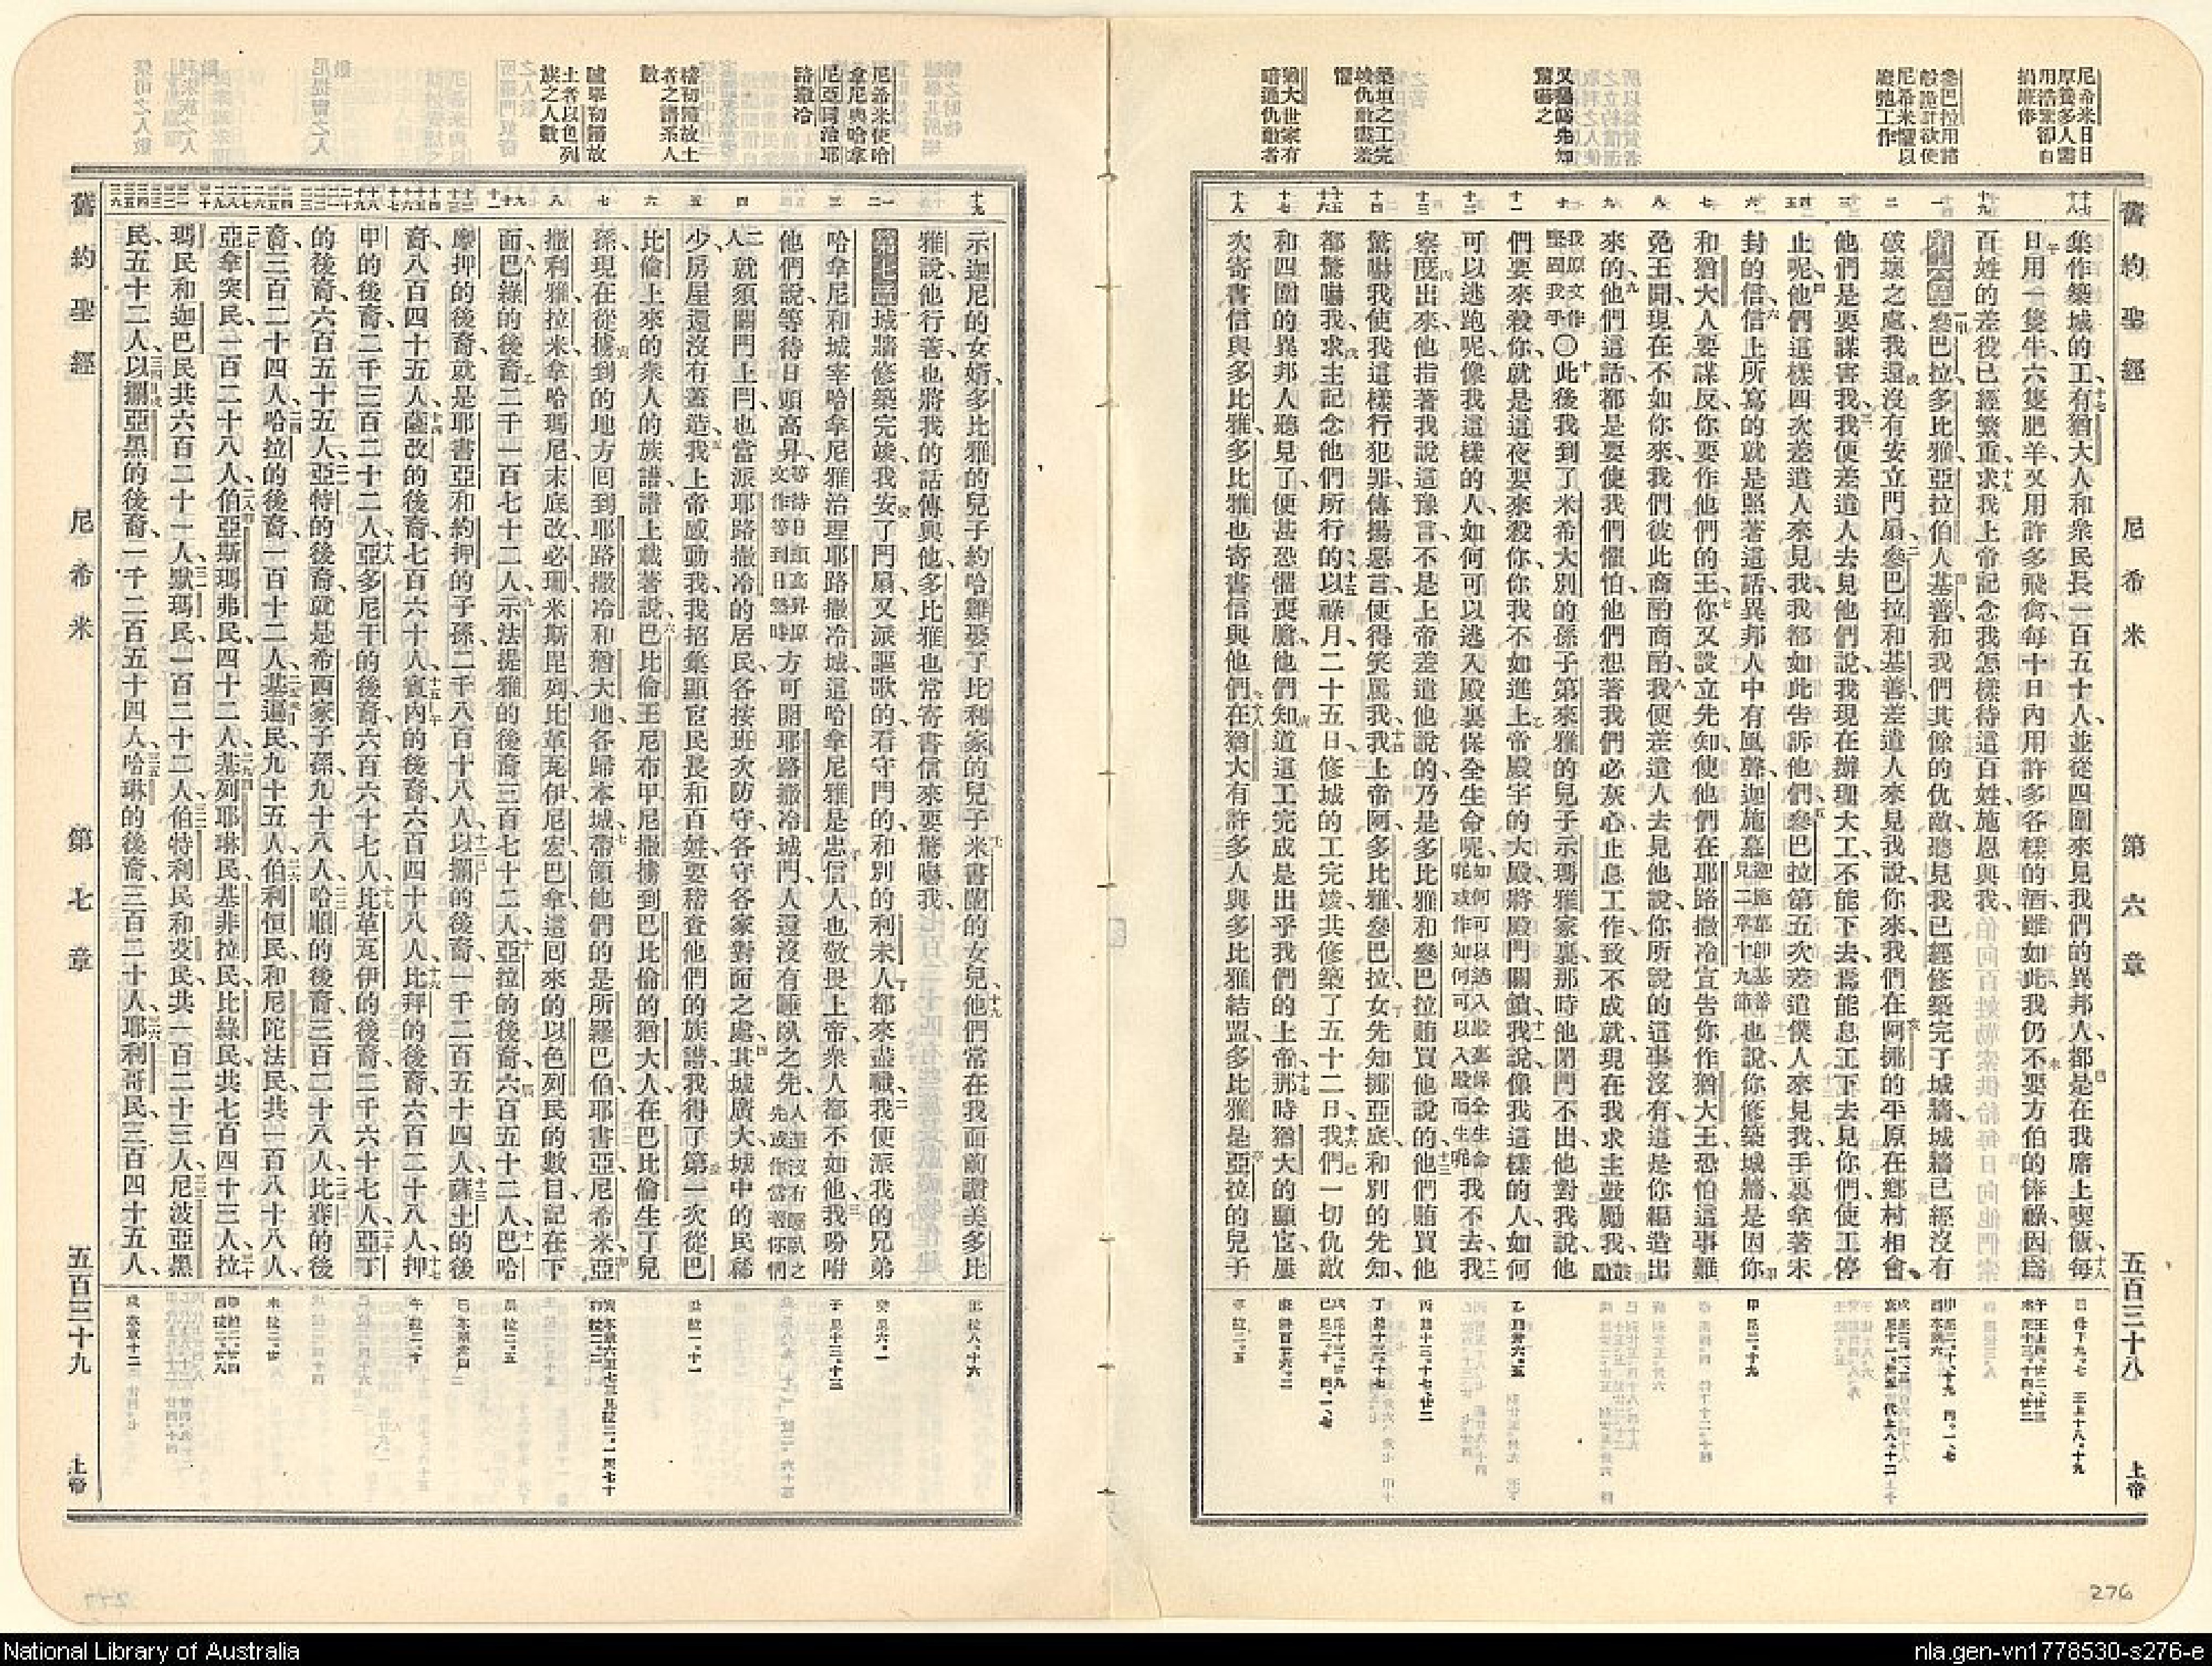 舊約聖經 尼希米 第六章 五百三十八 上帝
尼希米日日
厚養多人需
用浩繁卻自
捐廉俸
參巴拉用詭
般詭計欲使
尼希米懼以
廢弛工作
又賄囑先知
驚嚇之
築垣之工完
竣仇敵盡羞
懼
猶大世家有
暗通仇敵者
集作築城的工、十七有猶大人和衆民長一百五十人、並從四圍來見我們的異邦人、都是在我席上喫飯、十八每
日用一隻牛、六隻肥羊、又用許多飛禽、每十日內用許多各樣的酒、雖如此、我仍不要方伯的俸祿、因爲
百姓的差役已經繁重、十九求我上帝記念我怎樣待這百姓、施恩與我、
第六章 一參巴拉、多比雅、亞拉伯人基善、和我們其餘的仇敵、聽見我已經修築完了城牆、城牆已經沒有
破壞之處、我還沒有安立門扇、二參巴拉和基善、差遣人來見我說、你來、我們在阿挪的平原在鄉村相會、
他們是要謀害我、三我便差遣人去見他們說、我現在辦理大工、不能下去、焉能息工下去見你們、使工停
止呢、四他們這樣四次差遣人來見我、我都如此告訴他們、五參巴拉第五次差遣僕人來見我、手裏拿著未
封的信、六信上所寫的就是照著這話、異邦人中有風聲、迦施慕迦施慕卽基善見二章十九節也說、你修築城牆、是因你
和猶大人要謀反、你要作他們的王、七你又設立先知、使他們在耶路撒冷宣告你作猶大王、恐怕這事難
免王聞、現在不如你來、我們彼此商酌商酌、八我便差遣人去見他說、你所說的這事沒有、這是你編造出
來的、九他們這話、都是要使我們懼怕、他們想著我們必灰心止息工作、致不成就、現在我求主鼓勵我、鼓勵
我原文作堅固我手〇十此後我到了米希大別的孫子、第來雅的兒子、示瑪雅家裏、那時他閉門不出、他對我說、他
們要來殺你、就是這夜要來殺你、你我不如進上帝殿宇的大殿、將殿門關鎖、十一我說、像我這樣的人、如何
可以逃跑呢、像我這樣的人、如何可以逃入殿裏保全生命呢、如何可以逃入殿裏保全生命呢或作如何可以入殿而生呢我不去、十二我
察度出來、他指著我說這豫言、不是上帝差遣他說的、乃是多比雅和參巴拉賄買他說的、十三他們賄買他
驚嚇我、使我這樣行犯罪、傳揚惡言、便得笑罵我、十四我上帝阿、多比雅、參巴拉、女先知挪亞底、和別的先知、
都驚嚇我、求主記念他們所行的、十五以祿月二十五日、修城的工完竣、共修築了五十二日、十六我們一切仇敵
和四圍的異邦人聽見了、便甚恐懼喪膽、他們知道這工完成是出乎我們的上帝、十七那時猶大的顯宦屢
次寄書信與多比雅、多比雅也寄書信與他們、十八在猶大有許多人與多比雅結盟、多比雅是亞拉的兒子
276
尼希米使哈
拿尼與哈拿
尼亞同治耶
路撒冷
稽初歸故土
者之譜系人
數
臚舉初歸故
土者以色列
族之人數
示迦尼的女婿、多比雅的兒子約哈難娶了比利家的兒子米書蘭的女兒、十九他們常在我面前讚美多比
雅說、他行善、也將我的話傳與他、多比雅也常寄書信來要驚嚇我、
第七章 一城牆修築完竣、我安了門扇、又派謳歌的、看守門的、和別的利未人、都來盡職、二我便派我的兄弟
哈拿尼、和城宰哈拿尼雅、治理耶路撒冷城、這哈拿尼雅是忠信人、也敬畏上帝、衆人都不如他、三我吩咐
他們說、等待日頭高昇、等待日頭高昇原文作等到日熱時方可開耶路撒冷城門、人還沒有睡臥之先、人還沒有睡臥之先或作當著你們
人就須關門上閂、也當派耶路撒冷的居民、各按班次防守、各守各家對面之處、四其城廣大、城中的民稀
少、房屋還沒有蓋造、五我上帝感動我、我招集顯宦民長和百姓、要稽查他們的族譜、我得了第一次從巴
比倫上來的衆人的族譜、譜上載著說、六巴比倫王尼布甲尼撒擄到巴比倫的猶大人、在巴比倫生了兒
孫、現在從擄到的地方回到耶路撒冷和猶大地、各歸本城、七帶領他們的是所羅巴伯、耶書亞、尼希米、亞
撒利雅、拉米、拿哈瑪尼、末底改、必珊、米斯毘列、比革瓦伊、尼宏、巴拿、這回來的以色列民的數目、記在下
面、八巴綠的後裔二千一百七十二人、九示法提雅的後裔三百七十二人、十亞拉的後裔六百五十二人、十一巴哈
摩押的後裔、就是耶書亞和約押的子孫、二千八百十八人、十二以攔的後裔一千二百五十四人、十三薩土的後
裔八百四十五人、十四薩改的後裔七百六十人、十五賓內的後裔六百四十八人、十六比拜的後裔六百二十八人、十七押
甲的後裔二千三百二十二人、十八亞多尼干的後裔六百六十七人、十九比革瓦伊的後裔二千六十七人、二十亞丁
的後裔六百五十五人、二一亞特的後裔、就是希西家子孫、九十八人、二二哈順的後裔三百二十八人、二三比賽的後
裔三百二十四人、二四哈拉的後裔一百十二人、二五基遍民九十五人、二六伯利恒民和尼陀法民、共一百八十八人、
二七亞拿突民一百二十八人、二八伯亞斯瑪弗民四十二人、二九基列耶琳民、基非拉民、比綠民、共七百四十三人、三十拉
瑪民和迦巴民共六百二十一人、三一默瑪民一百二十二人、三二伯特利民和艾民、共一百二十三人、三三尼波亞黑
民五十二人、三四以攔亞黑的後裔一千二百五十四人、三五哈琳的後裔三百二十人、三六耶利哥民三百四十五人、
舊約聖經 尼希米 第七章 五百三十九 上帝
National Library of Australia
nla.gen-vn1778530-s276-e